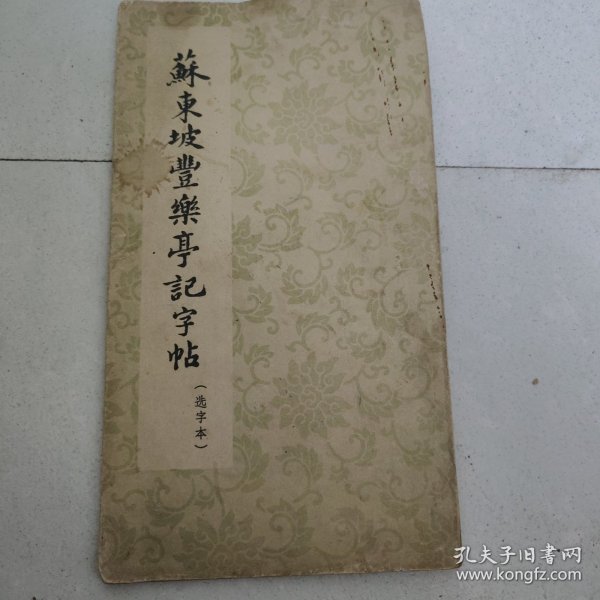 蘇東坡豐樂亭記字帖
（选字本）
孔夫子旧書网
www.kongfz.com